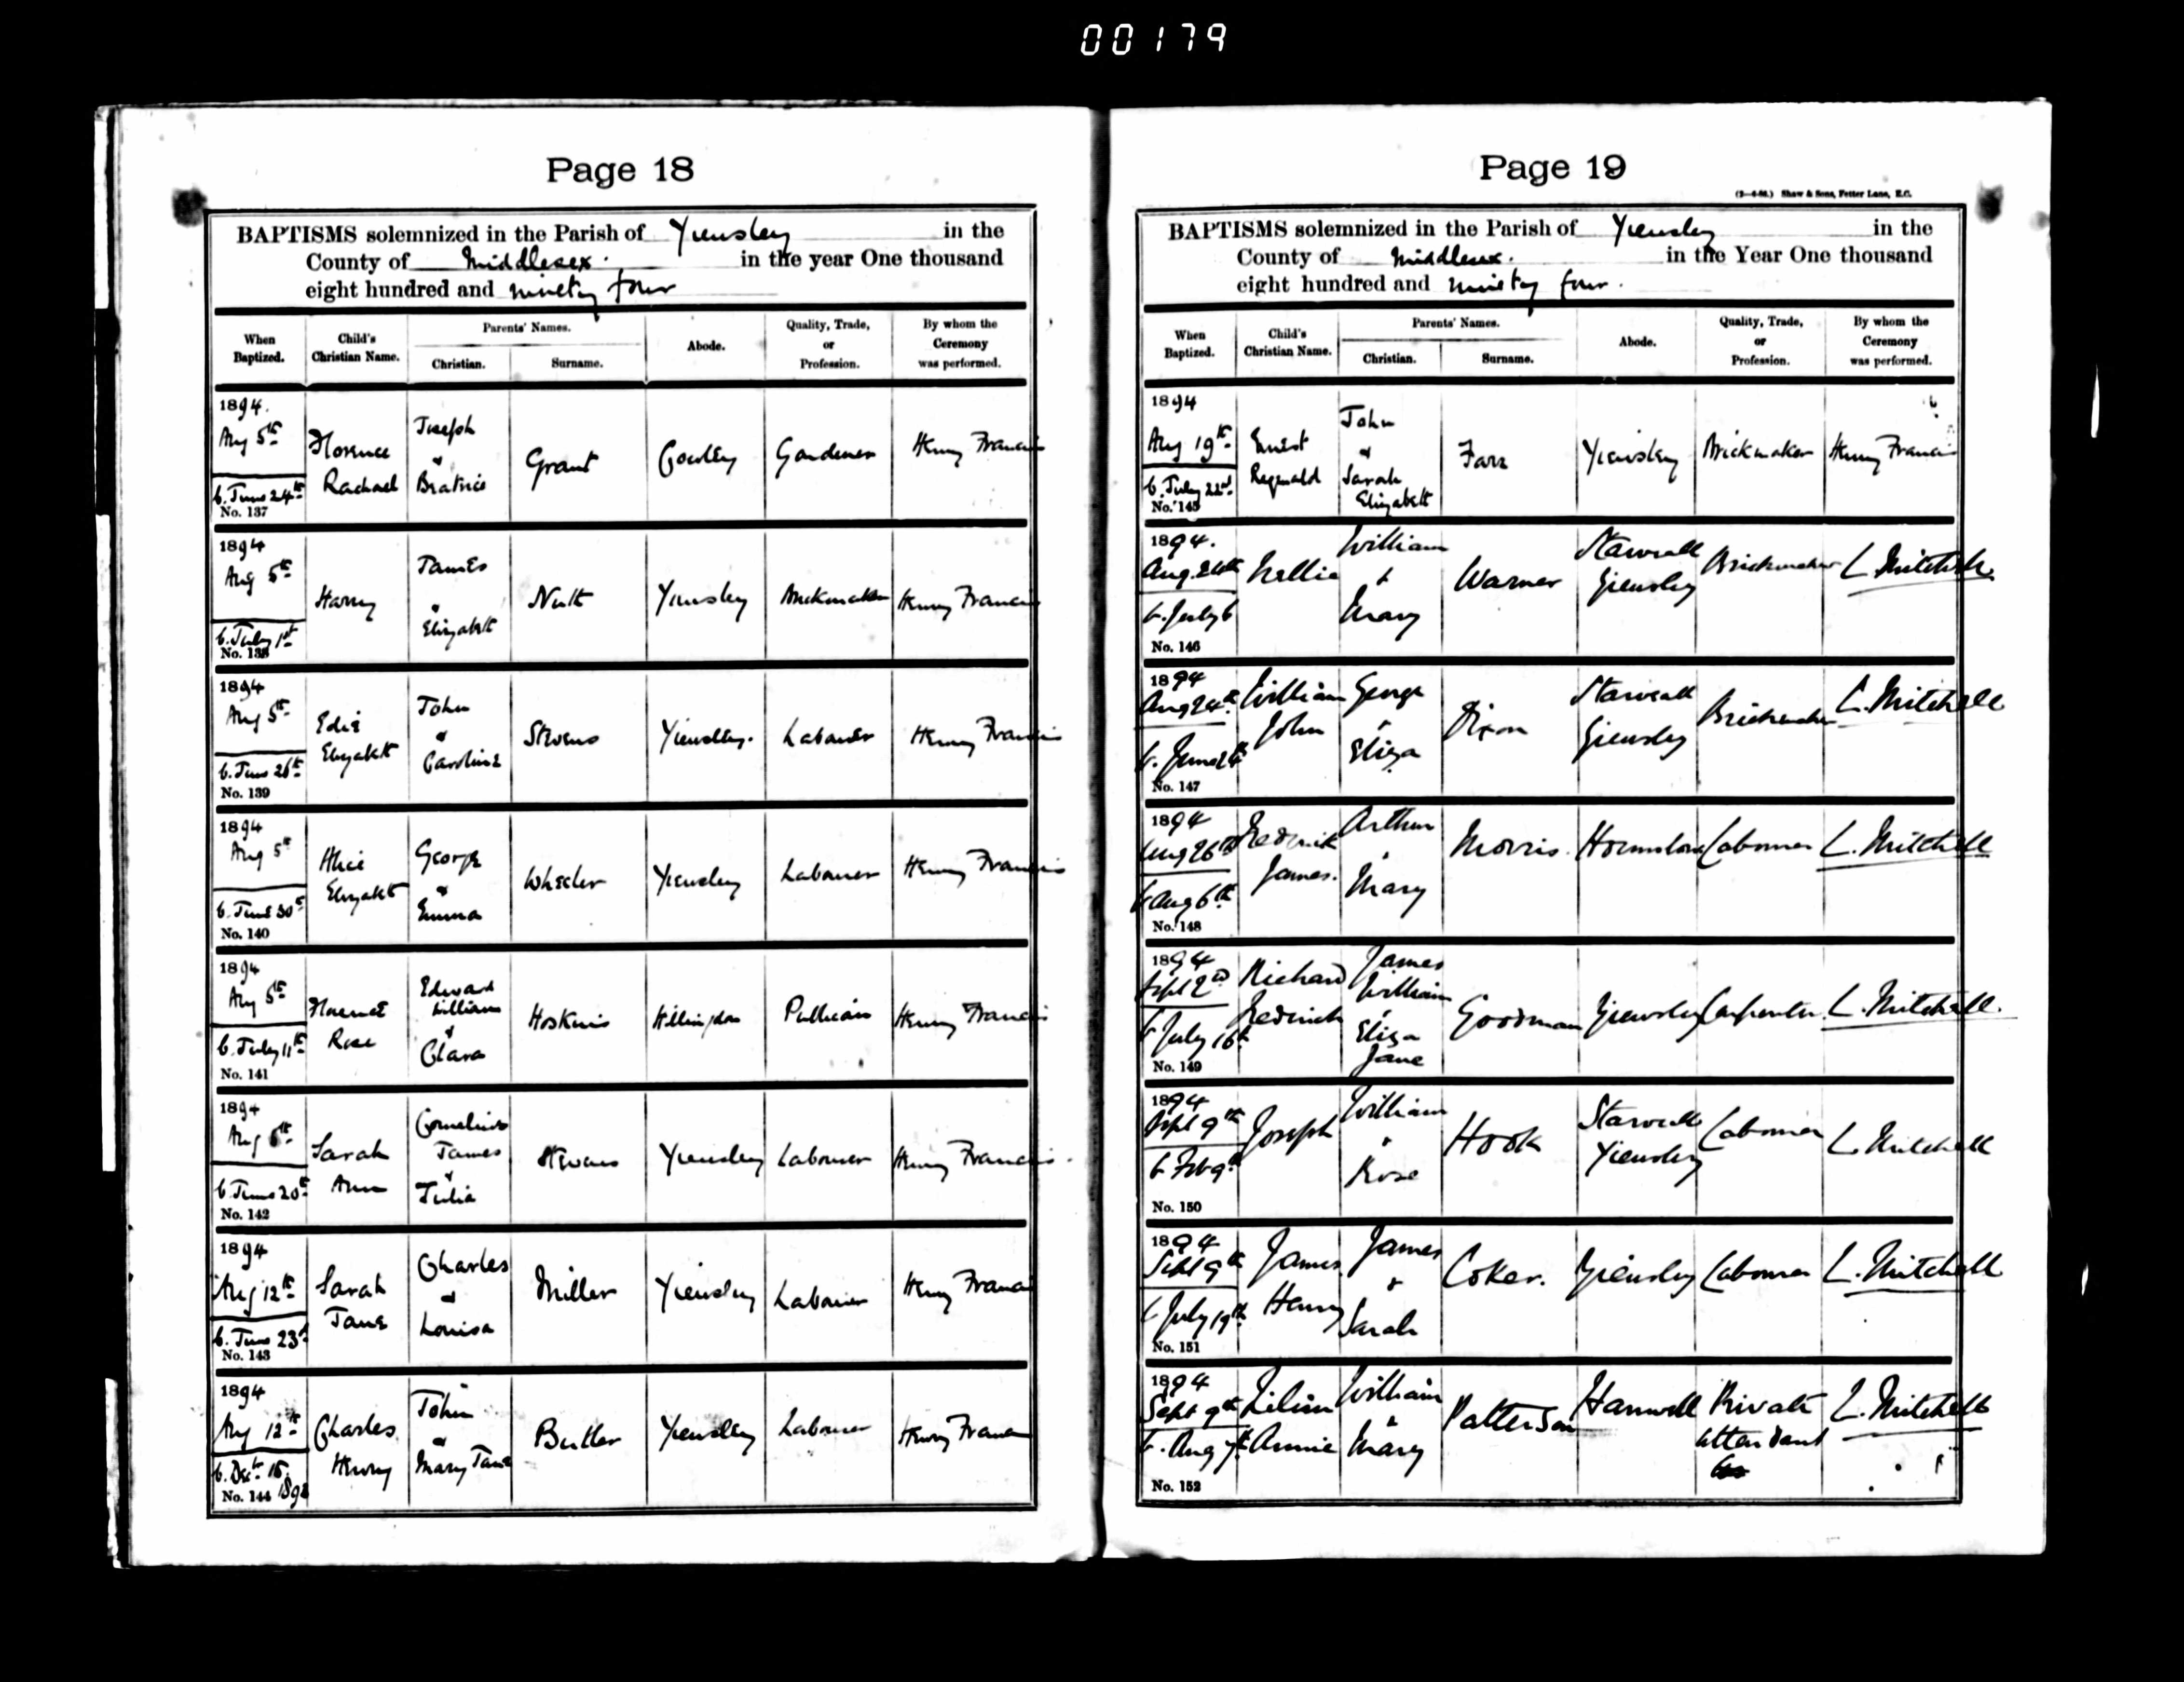 00179
Page 18
BAPTISMS solemnized in the Parish of Yiewsley in the
County of Middlesex. in the year One thousand
eight hundred and ninety four
When Baptized. Child's Christian Name. Parents' Names. Christian. Surname. Abode. Quality, Trade, or Profession. By whom the Ceremony was performed.
1894.
Aug 5th Florence Rachael Joseph & Beatrice Grant Cowley Gardener Henry Francis
b. June 24th
No. 137
1894
Aug 5th Harry James & Elizabeth Nutt Yiewsley Brickmaker Henry Francis
b. July 1st
No. 138
1894
Aug 5th Edie Elizabeth John & Caroline Stevens Yiewsley. Labourer Henry Francis
b. June 26th
No. 139
1894
Aug 5th Alice Elizabeth George & Emma Wheeler Yiewsley Labourer Henry Francis
b. June 30th
No. 140
1894
Aug 5th Florence Rose Edward William & Clara Hoskins Hillingdon Publican Henry Francis
b. July 11th
No. 141
1894
Aug 6th Sarah Ann Cornelius James & Julia Stevens Yiewsley Labourer Henry Francis.
b. June 20th
No. 142
1894
Aug 12th Sarah Jane Charles & Louisa Miller Yiewsley Labourer Henry Francis
b. June 23rd
No. 143
1894
Aug 12th Charles Henry John & Mary Jane Butler Yiewsley Labourer Henry Francis
b. Dec. 15.
No. 144
Page 19
Shaw & Sons, Fetter Lane, E.C.
BAPTISMS solemnized in the Parish of Yiewsley in the
County of Middlesex. in the Year One thousand
eight hundred and ninety four.
When Baptized. Child's Christian Name. Parents' Names. Christian. Surname. Abode. Quality, Trade, or Profession. By whom the Ceremony was performed.
1894
Aug 19th Ernest Reginald John & Sarah Elizabeth Farr Yiewsley Brickmaker Henry Francis
b. July 22nd
No. 145
1894.
Aug. 26th Nellie William & Mary Warner Starveall Yiewsley Brickmaker L. Mitchell
b. July 6
No. 146
1894
Aug William John George & Eliza Dixon Starveall Yiewsley Brickmaker L. Mitchell
b. June
No. 147
1894
Aug 26th Frederick James. Arthur & Mary Morris. Hounslow Labourer L. Mitchell
b Aug 6th
No. 148
1894
Sept 2nd Richard Frederick James William & Eliza Jane Goodman Yiewsley Carpenter. L. Mitchell.
b July 16th
No. 149
1894
Sept 9th Joseph William & Rose Hook Starveall Yiewsley Labourer L. Mitchell
b Feb 9th
No. 150
1894
Sept 9th James Henry James & Sarah Coker. Yiewsley Labourer L. Mitchell
b July 19th
No. 151
1894
Sept 9th Lilian Annie William & Mary Patterson Hanwell Private attendant L. Mitchell
b. Aug 7th
No. 152